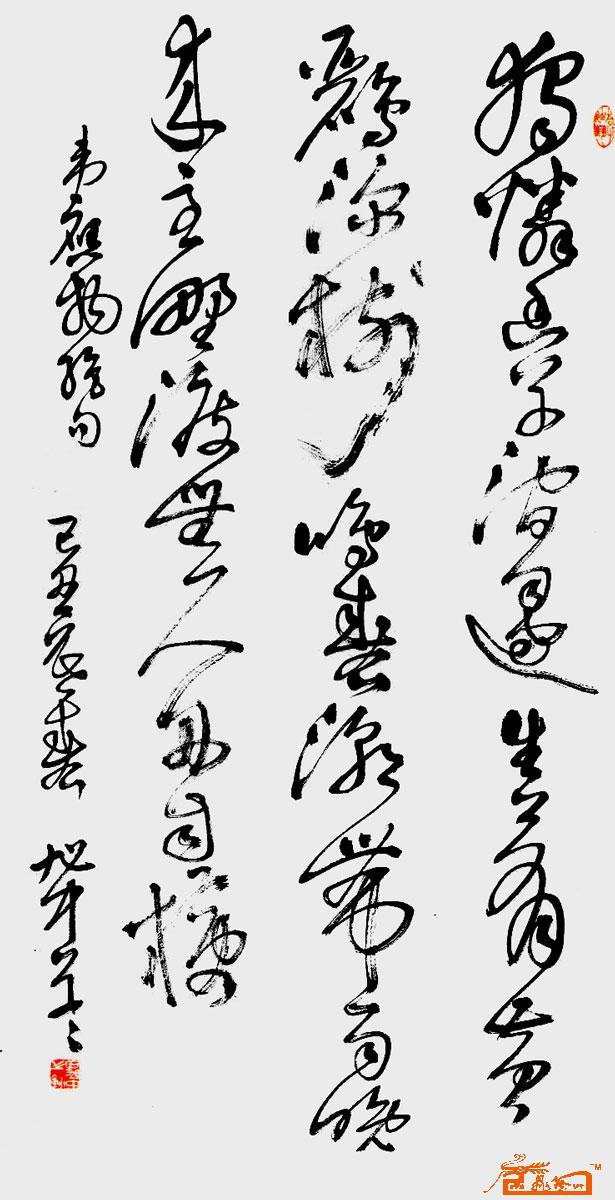 獨憐幽草澗邊生上有黃
鸝深樹鳴春潮帶雨晚
來急野渡無人舟自橫
韋應物絕句 己丑春